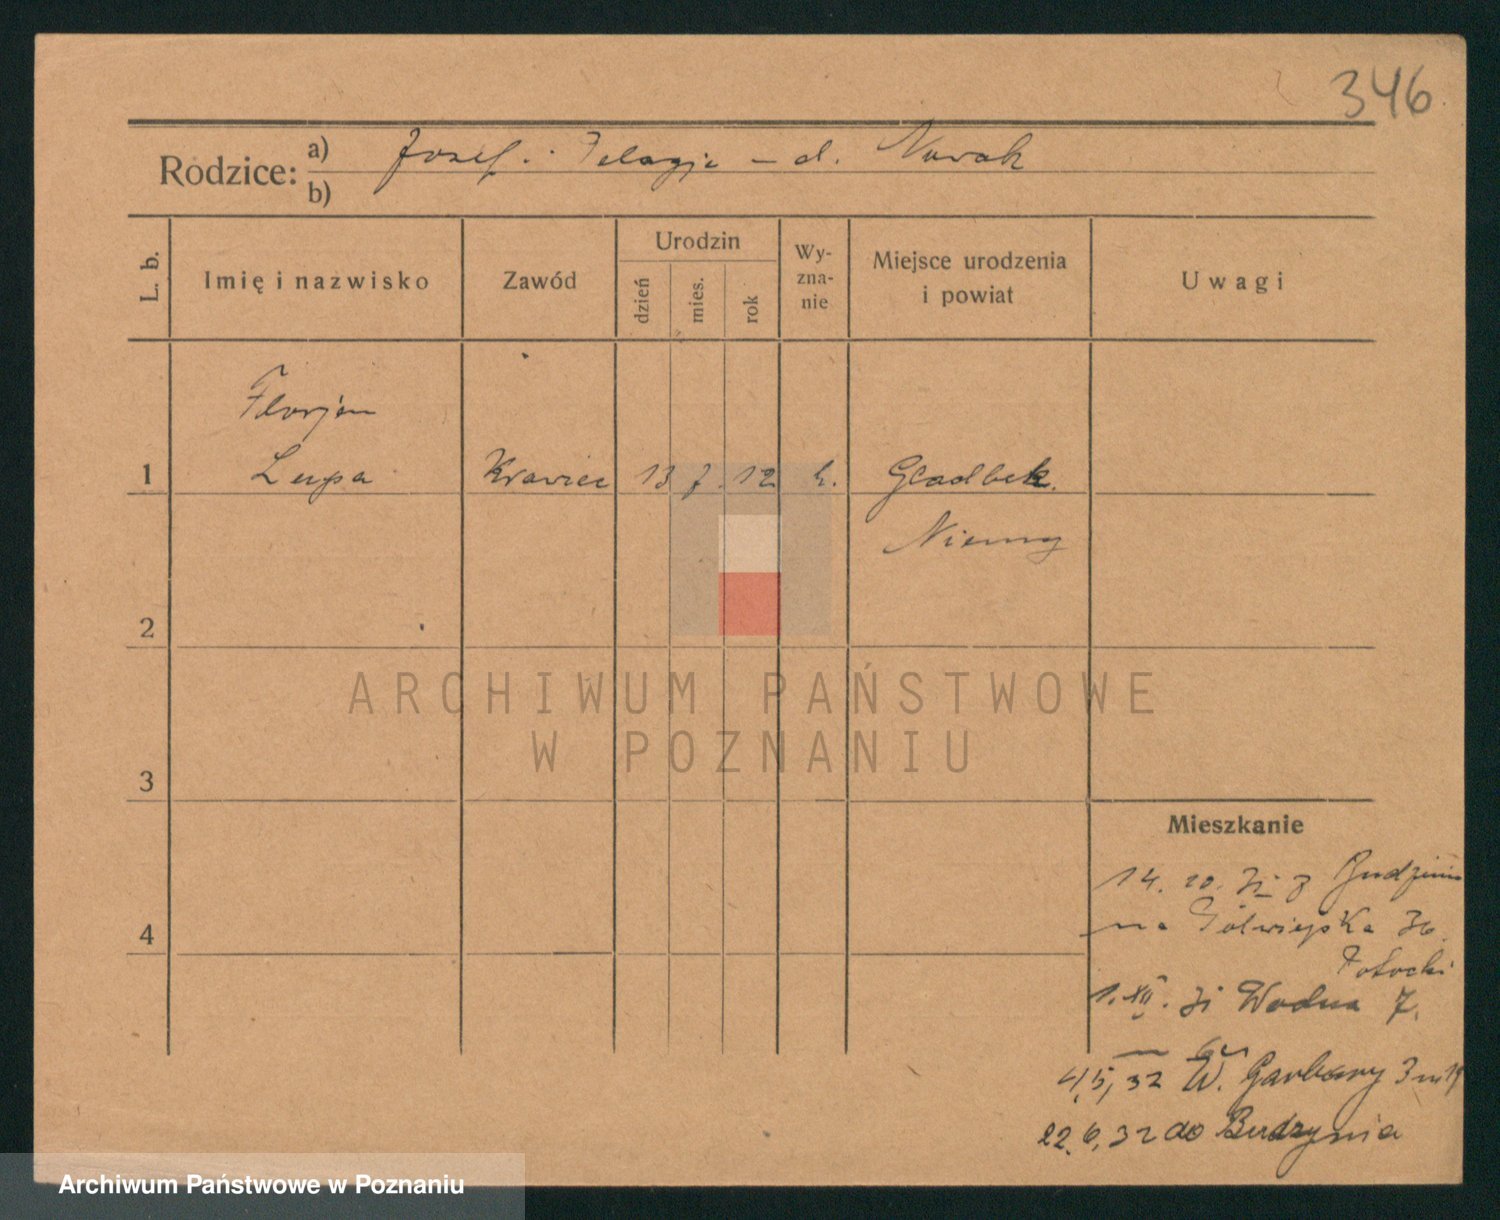 346
Rodzice: a) Józef. Pelagje – d. Nowak
b)
L. b. Imię i nazwisko Zawód Urodzin dzień mies. rok Wy-zna-nie Miejsce urodzenia i powiat Uwagi
Florjan
1 Lupa Krawiec 13 7 12 k. Gladbek.
Niemcy
2
ARCHIWUM PAŃSTWOWE
W POZNANIU
3
Mieszkanie
14. 10. 31 z Budzinia
4 na Półwiejska 36.
Potocki
1. XII. 31 Wodna 7.
4,5,32 W. Garbary 3 m 19
22.6,32 do Budzynia
Archiwum Państwowe w Poznaniu